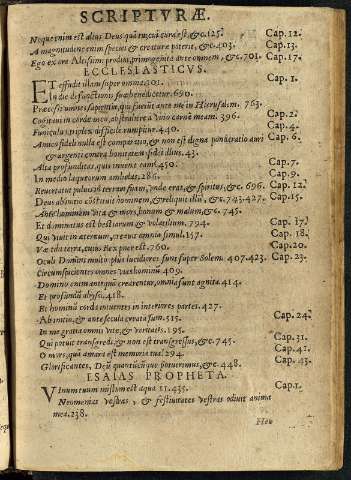 SCRIPTVRÆ.
Neque enim est alius Deus quā tu, cui cura est, &c.125. Cap.12.
A magnitudine enim speciei & creaturæ poterit, &c.403. Cap.13.
Ego ex ore Altissimi prodiui, primogenita ante omnem, &c.701. Cap.17.
ECCLESIASTICVS.
ET effudit illam super omnia.301. Cap.1.
In die defunctionis suæ benedicetur.690.
Præcessi omnes sapientia, qui fuerūt ante me in Hierusalem. 763.
Cogitaui in corde meo, abstrahere a vino carnē meam.396. Cap.2.
Funiculus triplex difficile rumpitur.440. Cap.4.
Amico fideli nulla est comparatio, & non est digna ponderatio auri Cap.6.
& argenti contra bonitatem fidei illius.43.
Alta profunditas, quis inuenit eam?.450. Cap.7.
In medio laqueorum ambulas.286. Cap.9.
Reuertatur puluis in terram suam, vnde erat, & spiritus, &c. 696. Cap.12.
Deus ab initio cōstituit hominem, & reliquit illū, &c.743.427. Cap.15.
Ante hominem vita & mors, bonum & malum, &c. 745.
Et dominatus est bestiarum & volatilium. 794. Cap.17.
Qui viuit in æternum, creauit omnia simul.157. Cap.18.
Væ tibi terra, cuius Rex puer est.760. Cap.20.
Oculi Domini multo plus lucidiores sunt super Solem. 407.423. Cap.23.
Circumspicientes omnes vias hominū 409.
Domino enim antequā crearentur, omnia sunt agnita.414.
Et profundū abyssi.418.
Et hominū corda intuentes in interiores partes.427.
Ab initio, & ante secula creata sum.515. Cap.24.
In me gratia omnis vitæ, & veritatis.195.
Qui potuit transgredi, & non est transgressus, &c.745. Cap.31.
O mors, quā amara est memoria tua!.294. Cap.41.
Glorificantes, Deū quantūcūque potueritis, &c.448. Cap.43.
ESAIAS PROPHETA.
VInum tuum mistum est aqua 11.435. Cap.1.
Neomenias vestras, & festiuitates vestras odiuit anima
mea.238.
Heu